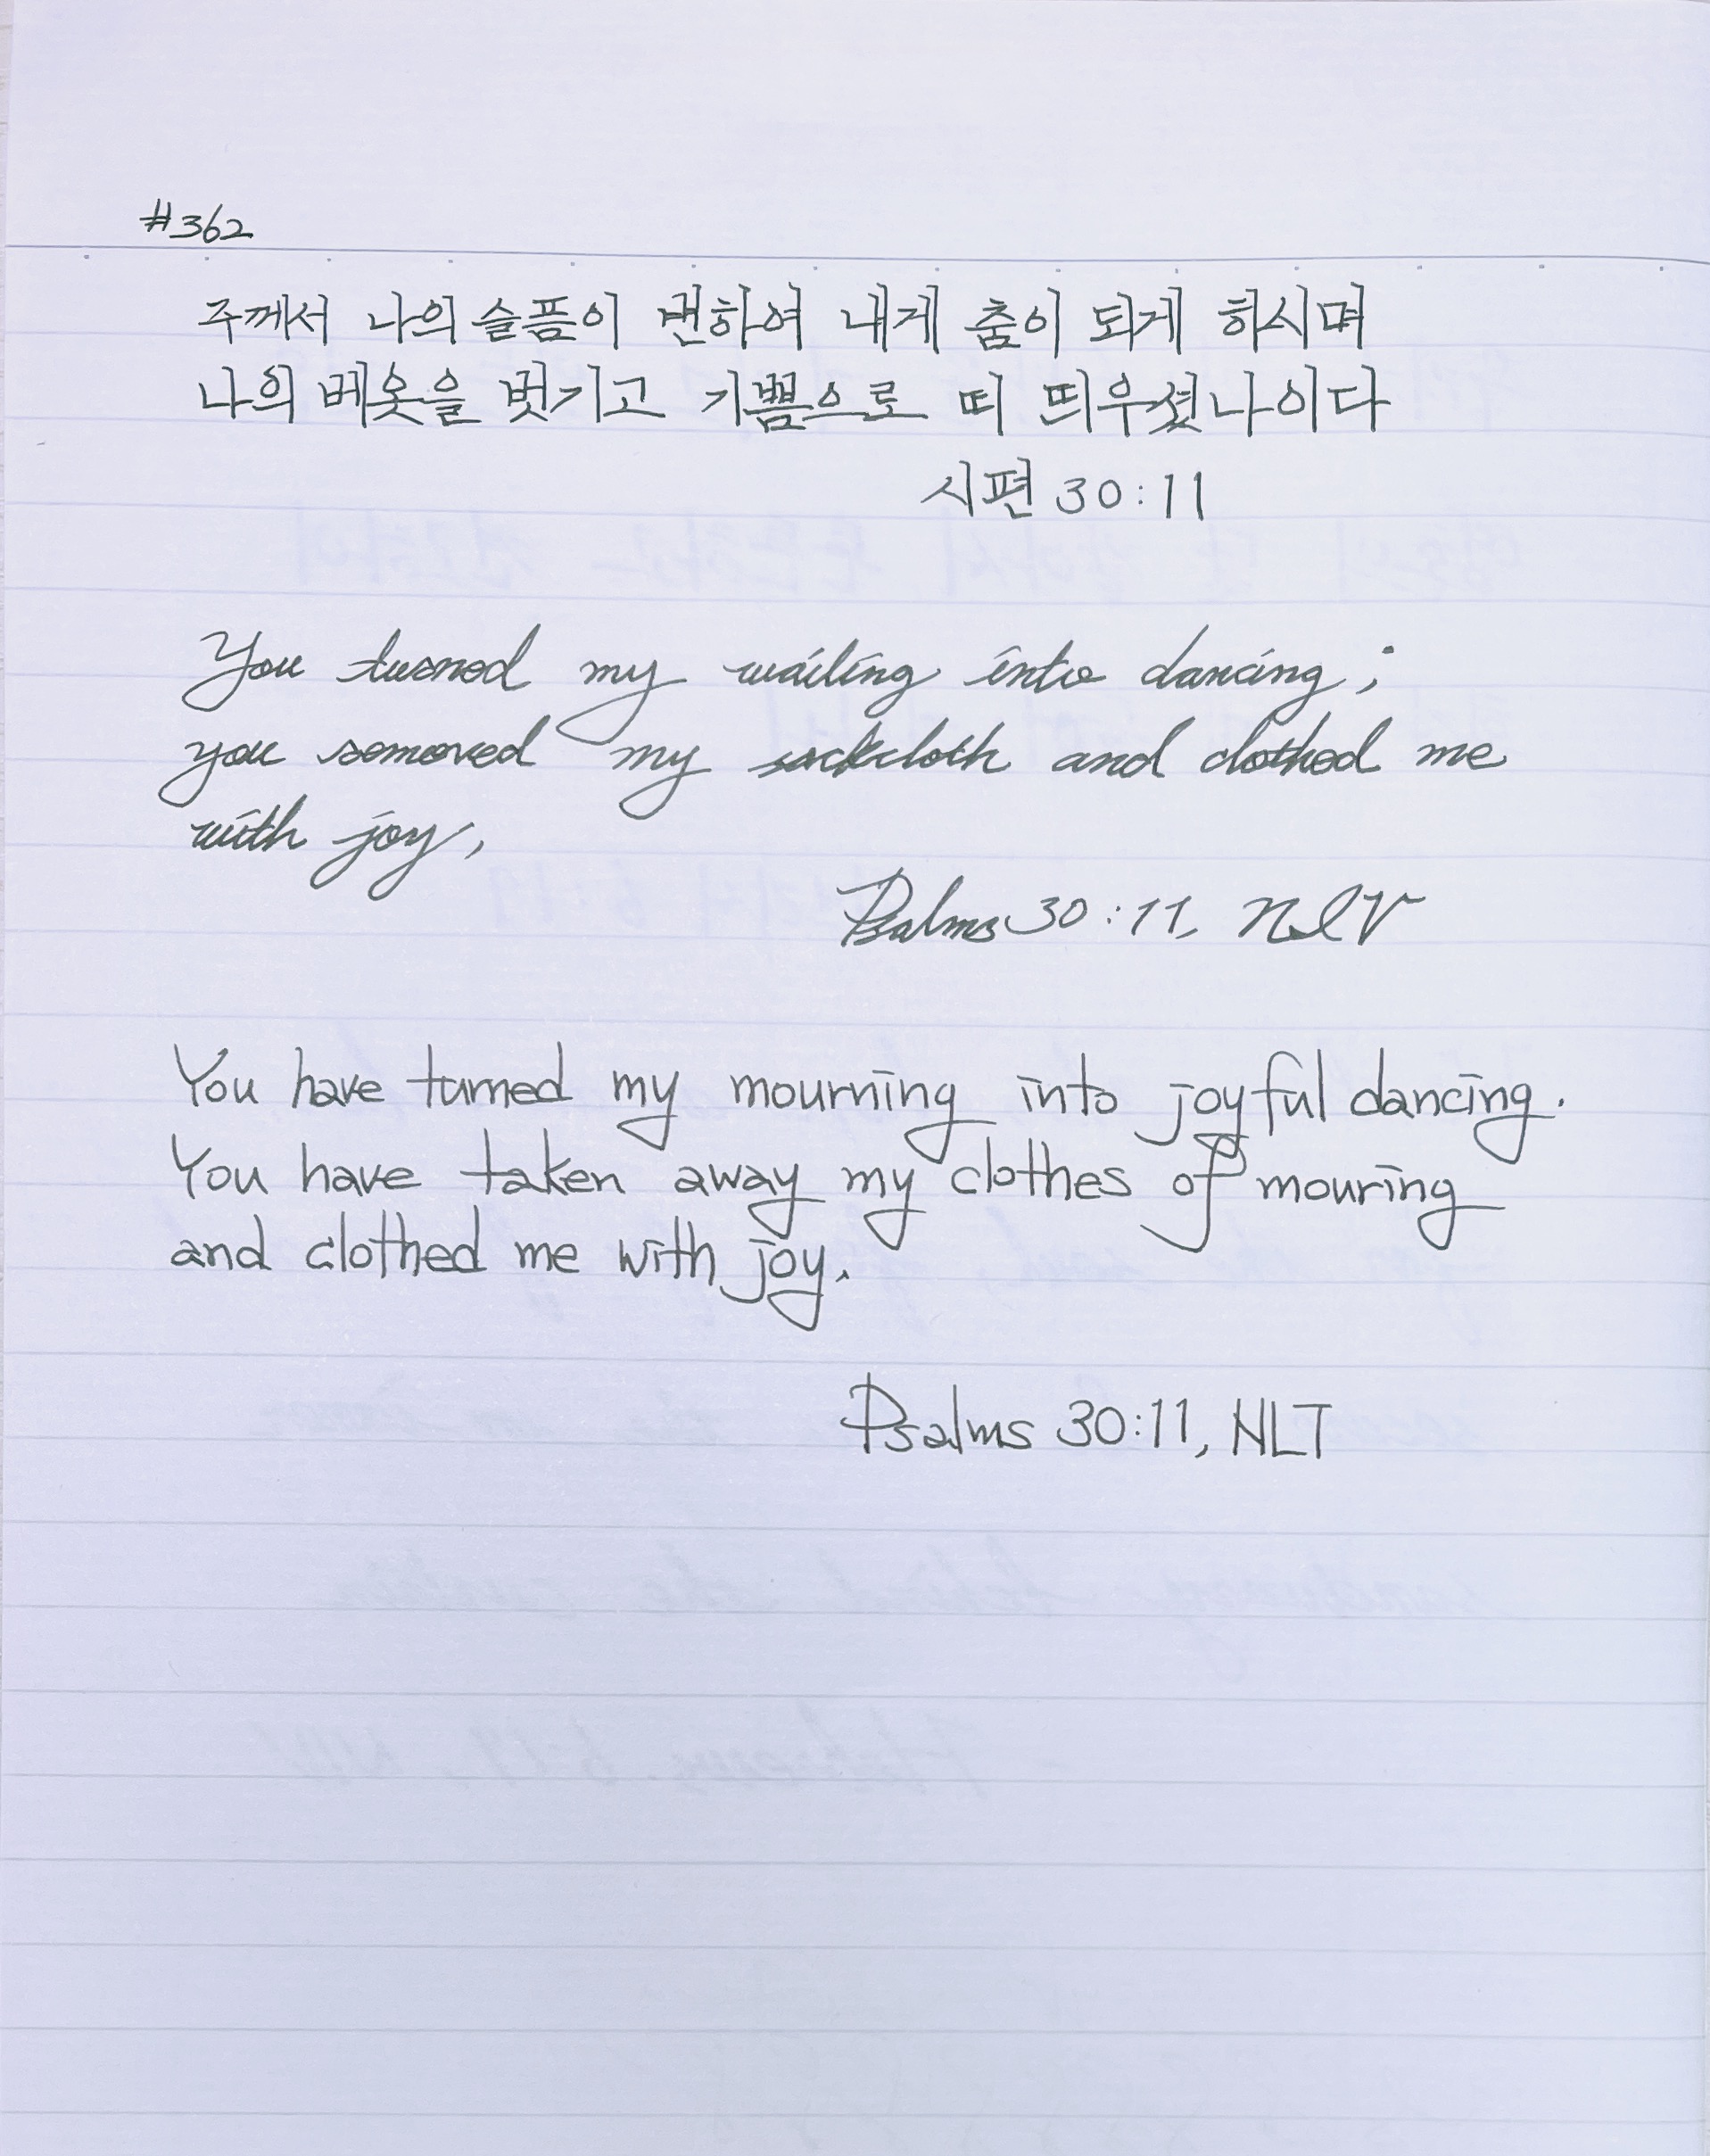 #362
주께서 나의 슬픔이 변하여 내게 춤이 되게 하시며
나의 베옷을 벗기고 기쁨으로 띠 띄우셨나이다
시편 30:11
You turned my wailing into dancing;
you removed my sackcloth and clothed me
with joy,
Psalms 30:11, NIV
You have turned my mourning into joyful dancing.
You have taken away my clothes of mouring
and clothed me with joy.
Psalms 30:11, NLT